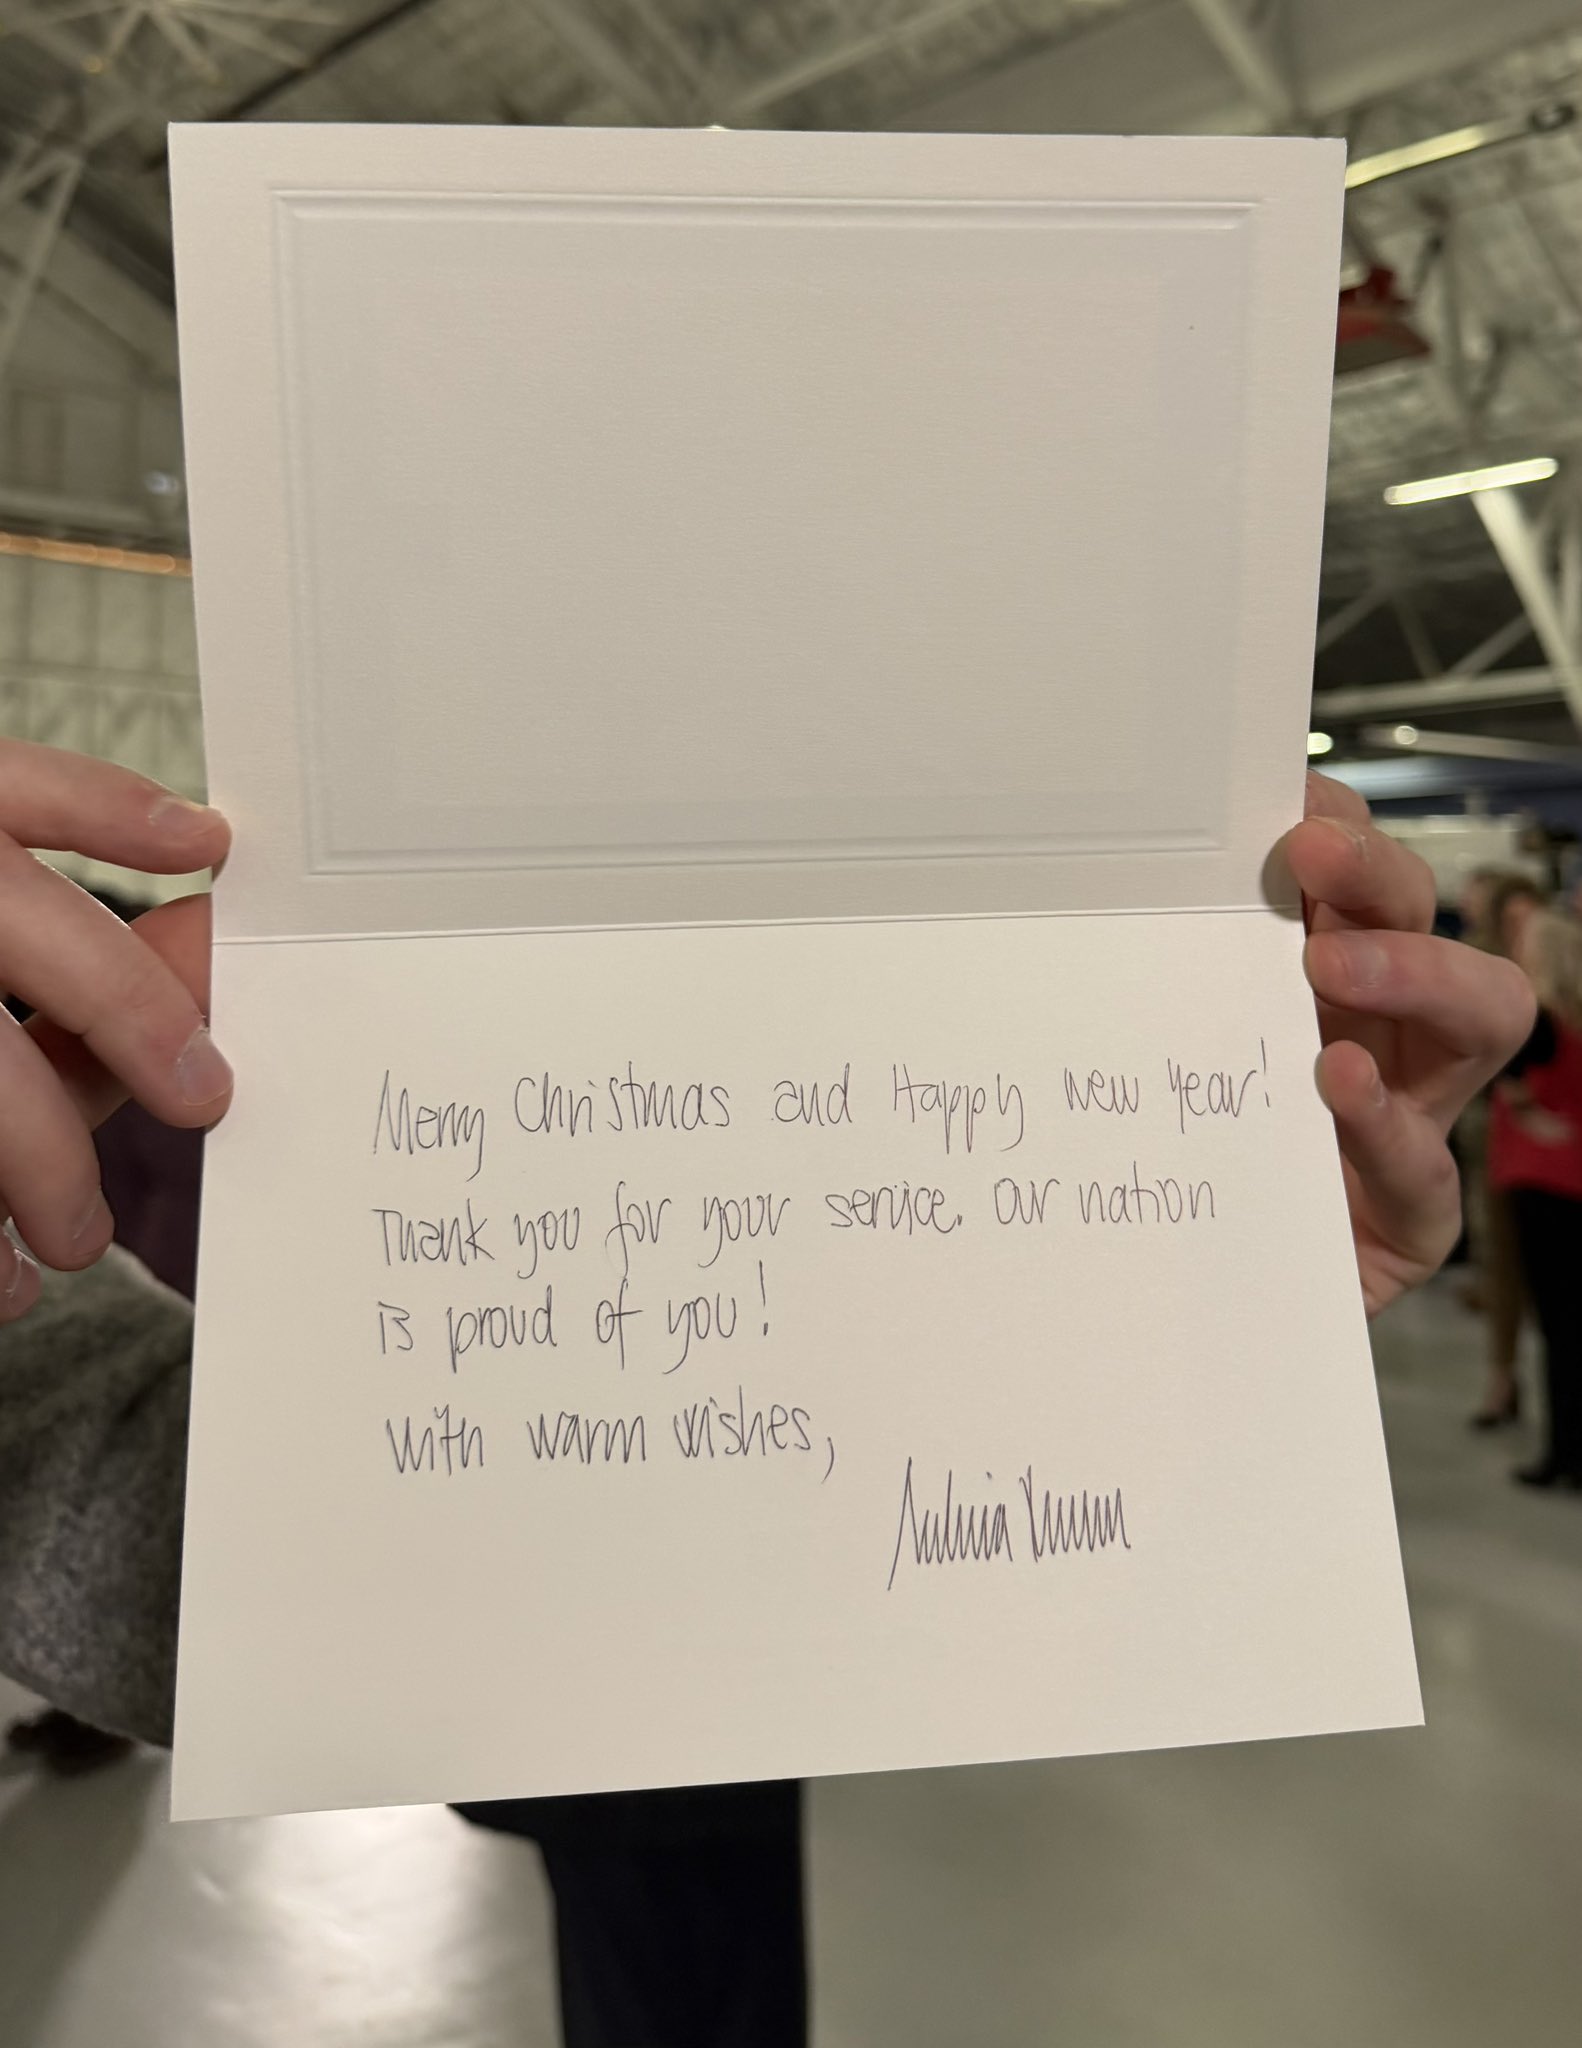 Merry Christmas and Happy New Year!
Thank you for your service. Our nation
is proud of you!
With warm wishes,